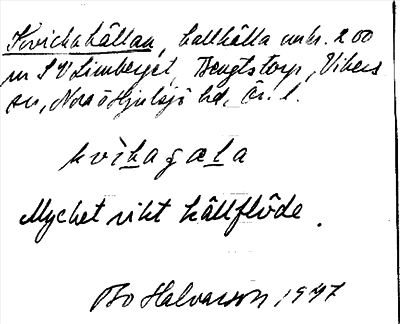 Kvickkällan, kallkälla omkr. 200
m SV Limberget, Bengtstorp, Vikers
sn, Nora o Hjulsjö hd, Ör. l.
kvìkagæla
Mycket rikt källflöde.
Bo Halvarson, 1947